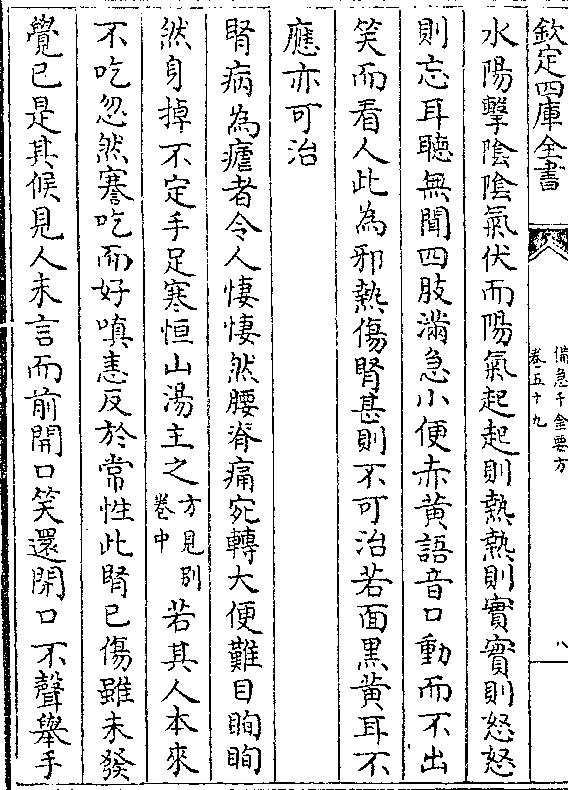 欽定四庫全書
備急千金要方
卷五十九
八
水陽擊陰陰氣伏而陽氣起起則熱熱則實實則怒怒
則忘耳聽無聞四肢滿急小便赤黃語音口動而不出
笑而看人此為邪熱傷腎甚則不可治若面黑黃耳不
應亦可治
腎病為瘧者令人悽悽然腰脊痛宛轉大便難目眴眴
然身掉不定手足寒恒山湯主之方見别卷中若其人本來
不吃忽然謇吃而好嗔恚反於常性此腎已傷雖未發
覺已是其候見人未言而前開口笑還閉口不聲舉手